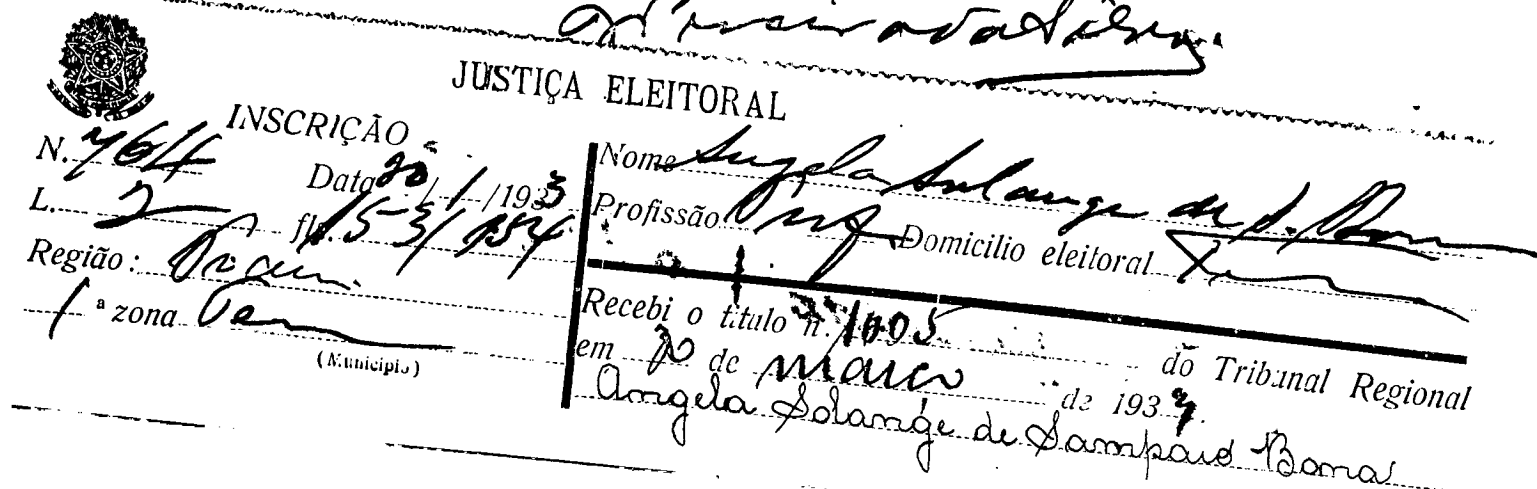 JUSTIÇA ELEITORAL
INSCRIÇÃO
N. 764 Data 20/1/1933
L. 2 fls. 153/154
Região:
1ª zona
(Municipio)
Nome Angela Solange de S. Bona
Profissão Prof Domicilio eleitoral
Recebi o titulo n. 1005 do Tribunal Regional
em 20 de março de 193
Angela Solange de Sampaio Bona